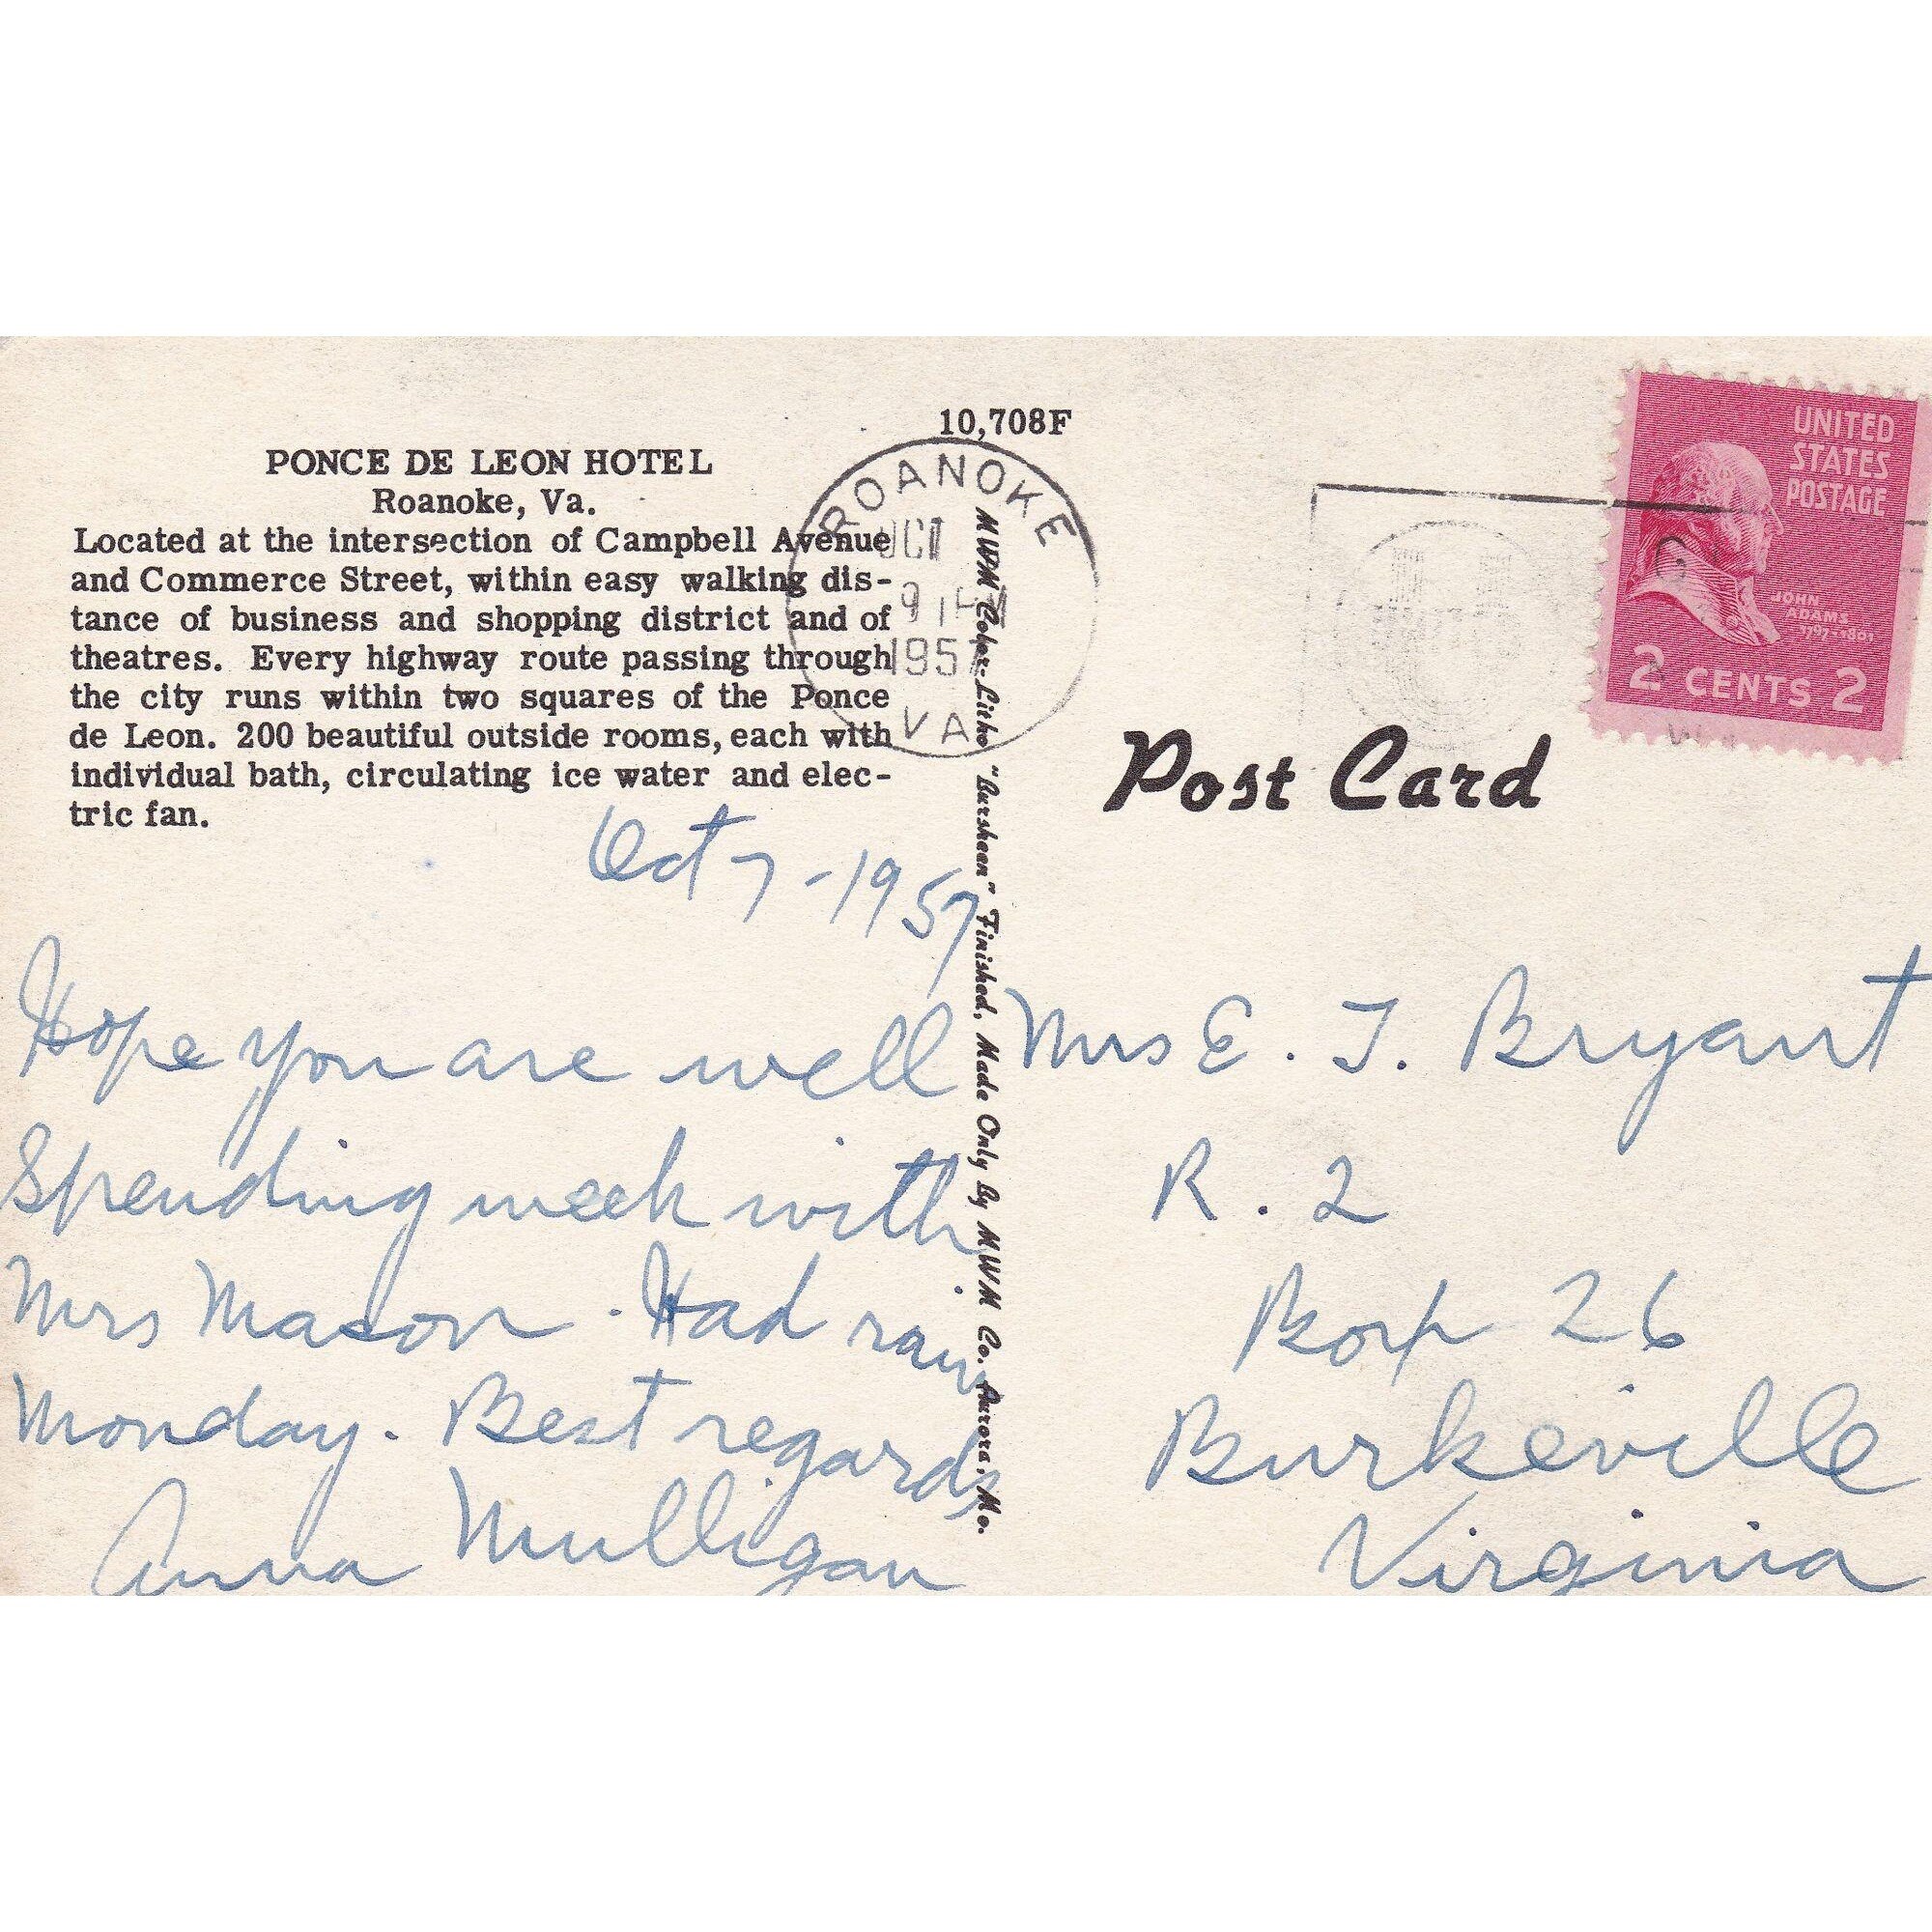 10,708F
PONCE DE LEON HOTEL
Roanoke, Va.
Located at the intersection of Campbell Avenue
and Commerce Street, within easy walking dis-
tance of business and shopping district and of
theatres. Every highway route passing through
the city runs within two squares of the Ponce
de Leon. 200 beautiful outside rooms, each with
individual bath, circulating ice water and elec-
tric fan.
Oct 7-1957
Hope you are well
Spending week with
Mrs Mason. Had rain
Monday. Best regards
Anna Mulligan
MWM Color-Litho "Aursheen" Finished, Made Only By MWM Co. Aurora, Mo.
ROANOKE
OCT
9
1957
VA
UNITED
STATES
POSTAGE
JOHN
ADAMS
1797-1801
2 CENTS 2
Post Card
Mrs E. T. Bryant
R. 2
Box 26
Burkeville
Virginia